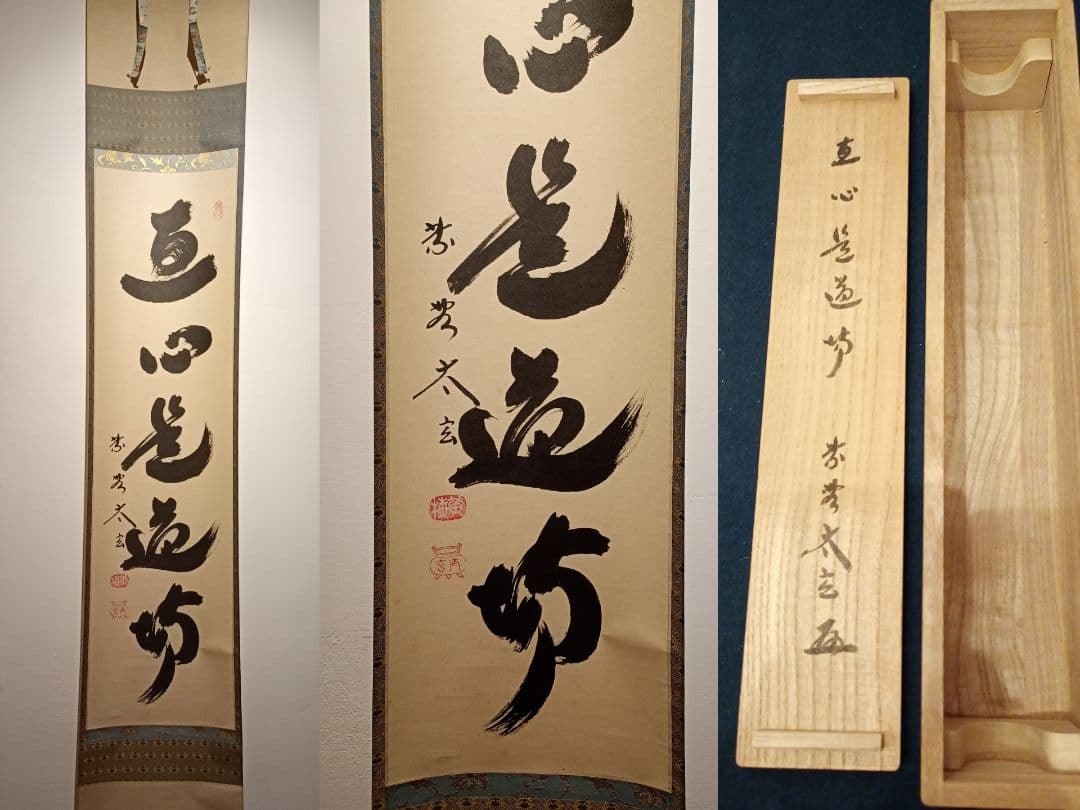 直心是道場
紫埜太玄
心是道場
紫埜太玄
黄梅
直心是道場
紫埜太玄